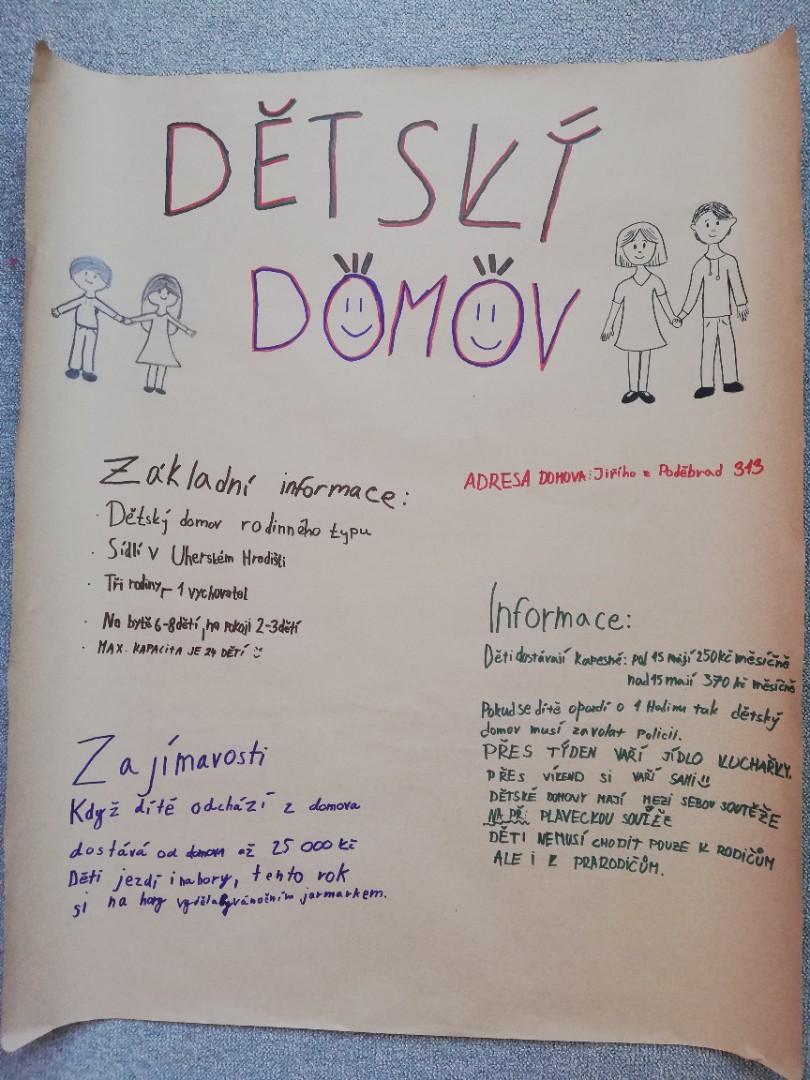 DĚTSKÝ
DOMOV
Základní informace:
· Dětský domov rodinného typu
· Sídlí v Uherském Hradišti
· Tři rodiny – 1 vychovatel
· Na bytě 6-8 dětí, na pokoji 2-3 dětí
· MAX. KAPACITA JE 24 DĚTÍ
Zajímavosti
Když dítě odchází z domova
dostává od domova až 25 000 Kč
Děti jezdí i na hory, tento rok
si na hory vydělaly vánočním jarmarkem.
ADRESA DOMOVA: Jiřího z Poděbrad 313
Informace:
Děti dostávají kapesné: pod 15 mají 250 Kč měsíčně
nad 15 mají 370 Kč měsíčně
Pokud se dítě opozdí o 1 Hodinu tak dětský
domov musí zavolat Policii.
PŘES TÝDEN VAŘÍ JÍDLO KUCHAŘKY.
PŘES VÍKEND SI VAŘÍ SAMI
DĚTSKÉ DOMOVY MAJÍ MEZI SEBOU SOUTĚŽE
NAPŘ: PLAVECKOU SOUTĚŽ
DĚTI NEMUSÍ CHODIT POUZE K RODIČŮM
ALE i K PRARODIČŮM.